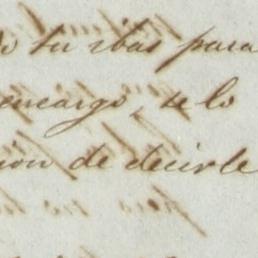 tu ibas para
encargo, te lo
ion de decirle